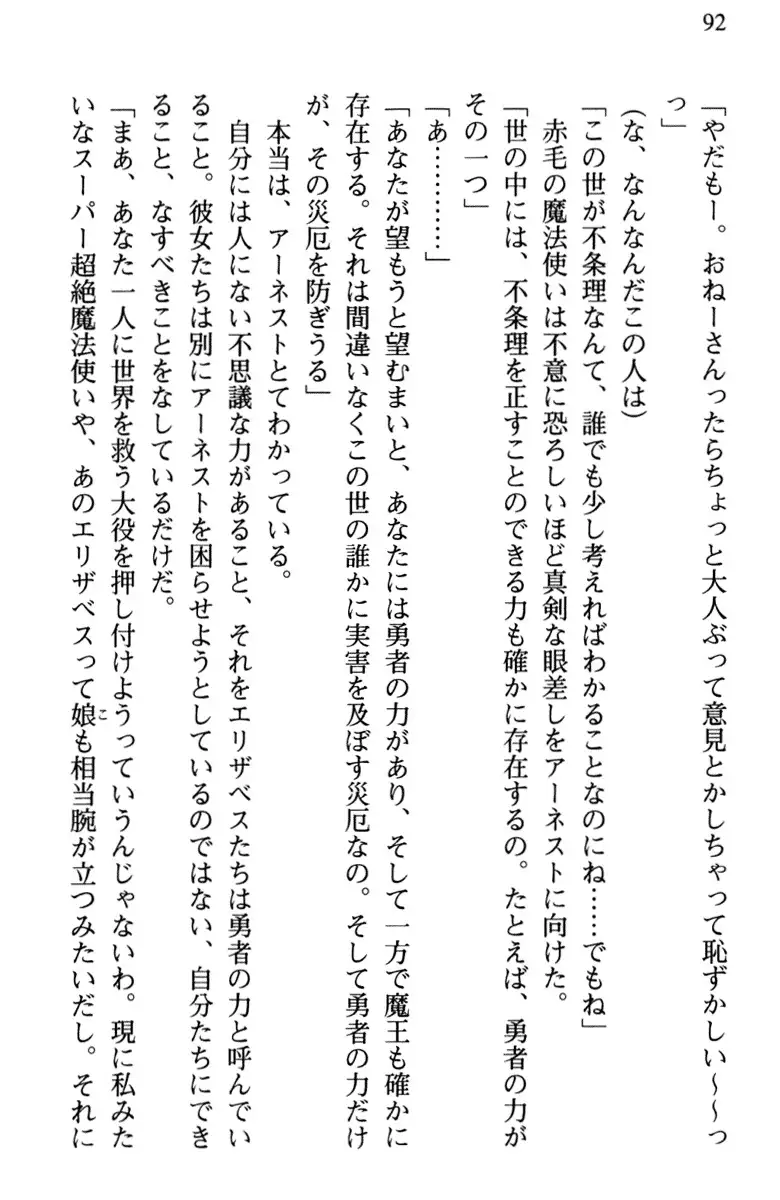 92
「やだもー。おねーさんったらちょっと大人ぶって意見とかしちゃって恥ずかしい～～っ
っ」
(な、なんなんだこの人は)
「この世が不条理なんて、誰でも少し考えればわかることなのにね……でもね」
赤毛の魔法使いは不意に恐ろしいほど真剣な眼差しをアーネストに向けた。
「世の中には、不条理を正すことのできる力も確かに存在するの。たとえば、勇者の力が
その一つ」
「あ…………」
「あなたが望もうと望むまいと、あなたには勇者の力があり、そして一方で魔王も確かに
存在する。それは間違いなくこの世の誰かに実害を及ぼす災厄なの。そして勇者の力だけ
が、その災厄を防ぎうる」
本当は、アーネストとてわかっている。
自分には人にない不思議な力があること、それをエリザベスたちは勇者の力と呼んでい
ること。彼女たちは別にアーネストを困らせようとしているのではない、自分たちにでき
ること、なすべきことをなしているだけだ。
「まあ、あなた一人に世界を救う大役を押し付けようっていうんじゃないわ。現に私みた
いなスーパー超絶魔法使いや、あのエリザベスって娘こも相当腕が立つみたいだし。それに